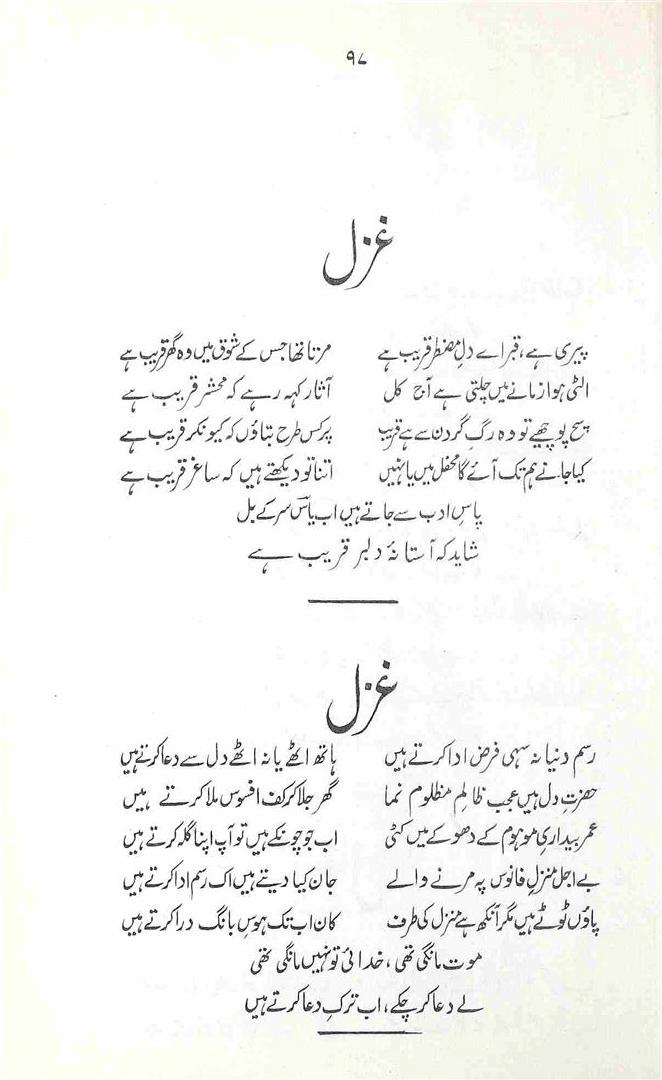 ۹۷
غزل
پیری ہے، قبر اے دلِ مضطر قریب ہے مرتا تھا جس کے شوق میں وہ گھر قریب ہے
الٹی ہوا زمانے میں چلتی ہے آج کل آثار کہہ رہے کہ محشر قریب ہے
سچ پوچھیے تو وہ رگِ گردن سے ہے قریب پر کس طرح بتاؤں کہ کیونکر قریب ہے
کیا جانے ہم تک آئے گا محفل میں یا نہیں اتنا تو دیکھتے ہیں کہ ساغر قریب ہے
پاسِ ادب سے جاتے ہیں اب یاسؔ سر کے بل
شاید کہ آستانۂ دلبر قریب ہے
غزل
رسم دنیا نہ سہی فرض ادا کرتے ہیں ہاتھ اٹھے یا نہ اٹھے دل سے دعا کرتے ہیں
حضرتِ دل ہیں عجب ظالمِ مظلوم نما گھر جلا کر کف افسوس ملا کرتے ہیں
عمر بیداریِ موہوم کے دھوکے میں کٹی اب جو چونکے ہیں تو آپ اپنا گلہ کرتے ہیں
بے اجل منزلِ فانوس پہ مرنے والے جان کیا دیتے ہیں اک رسم ادا کرتے ہیں
پاؤں ٹوٹے ہیں مگر آنکھ ہے منزل کی طرف کان اب تک ہوسِ بانگ درا کرتے ہیں
موت مانگی تھی، خدائی تو نہیں مانگی تھی
لے دعا کر چکے، اب ترکِ دعا کرتے ہیں